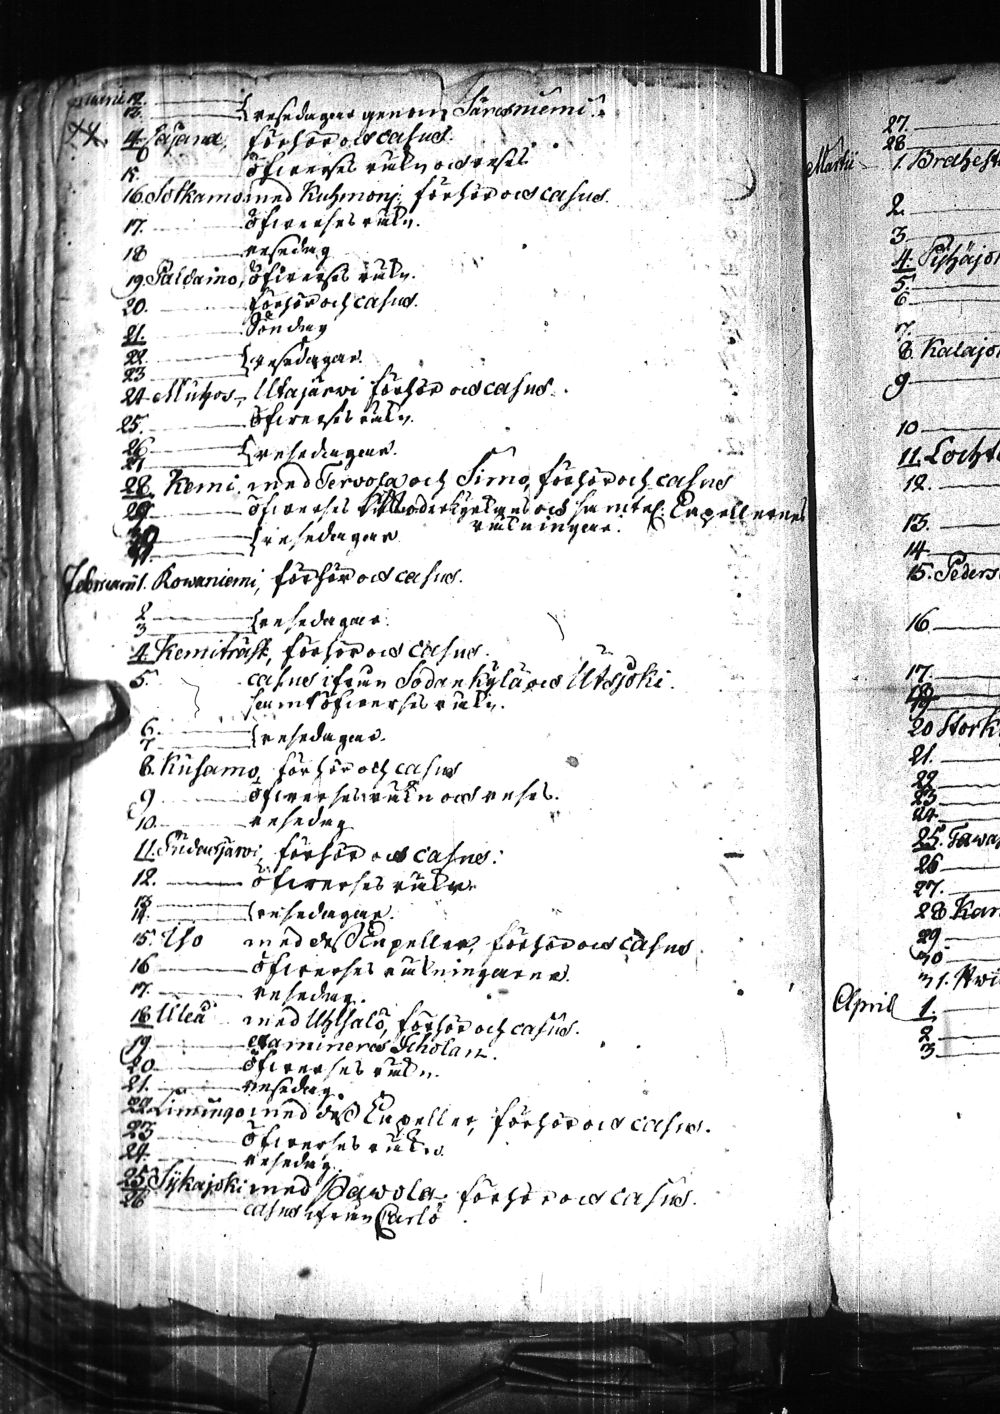 12.
13. resedagar genom Säresniemi.
14 Cajana, förhör och casus.
15. öfwerses räkn och reses
16. Sotkamo med Kuhmonj: förhör och casus.
17. öfwerses räkn.
18 resedag
19. Paldamo, öfwerses räkn.
20. förhör och casus.
21. Söndag
22
23 resedagar.
24 Muhos, Utajärwi förhör och casus.
25. öfwerses räkn.
26
27 resedagar.
28. Kemi, med Tervola och Simo, förhör och casus
29 öfwerses Moderkyrkans och samtel. Capellernes
räkningar.
30
31. resedagar
Februarii 1. Rowaniemi, förhör och casus.
2
3 resedagar.
4. Kemiträsk, förhör och casus.
5. casus ifrån Sodankylä och Utsjoki.
samt öfwerses räkn.
6.
7 resedagar.
8. Kusamo, förhör och casus
9 öfwerses räkn och reses.
10. resedag
11. Pudasjärwi, förhör och casus.
12. öfwerses räkn.
13
14. resedagar.
15. Ijo med dess Capeller, förhör och casus.
16 öfwerses räkningarna.
17. resedag.
18 Uleå med Uhlsalo, förhör och casus.
19 examineras Scholan.
20 öfwerses räkn.
21. resedag.
22. Limingo med dess Capeller, förhör och casus.
23 öfwerses räkn
24. resedag.
25. Sijkajoki med Pawola, förhör och casus.
26 casus ifrån Carlö
27.
28
Martii 1. Brahest
2.
3
4. Pyhäjo
5.
6
7.
8. Kalajo
9
10
11. Locht
12.
13.
14
15. Peders
16
17.
18
19
20 Stork
21.
22
23
24
25. Tawa
26
27.
28 Kar
29
30
31.
April 1.
2
3